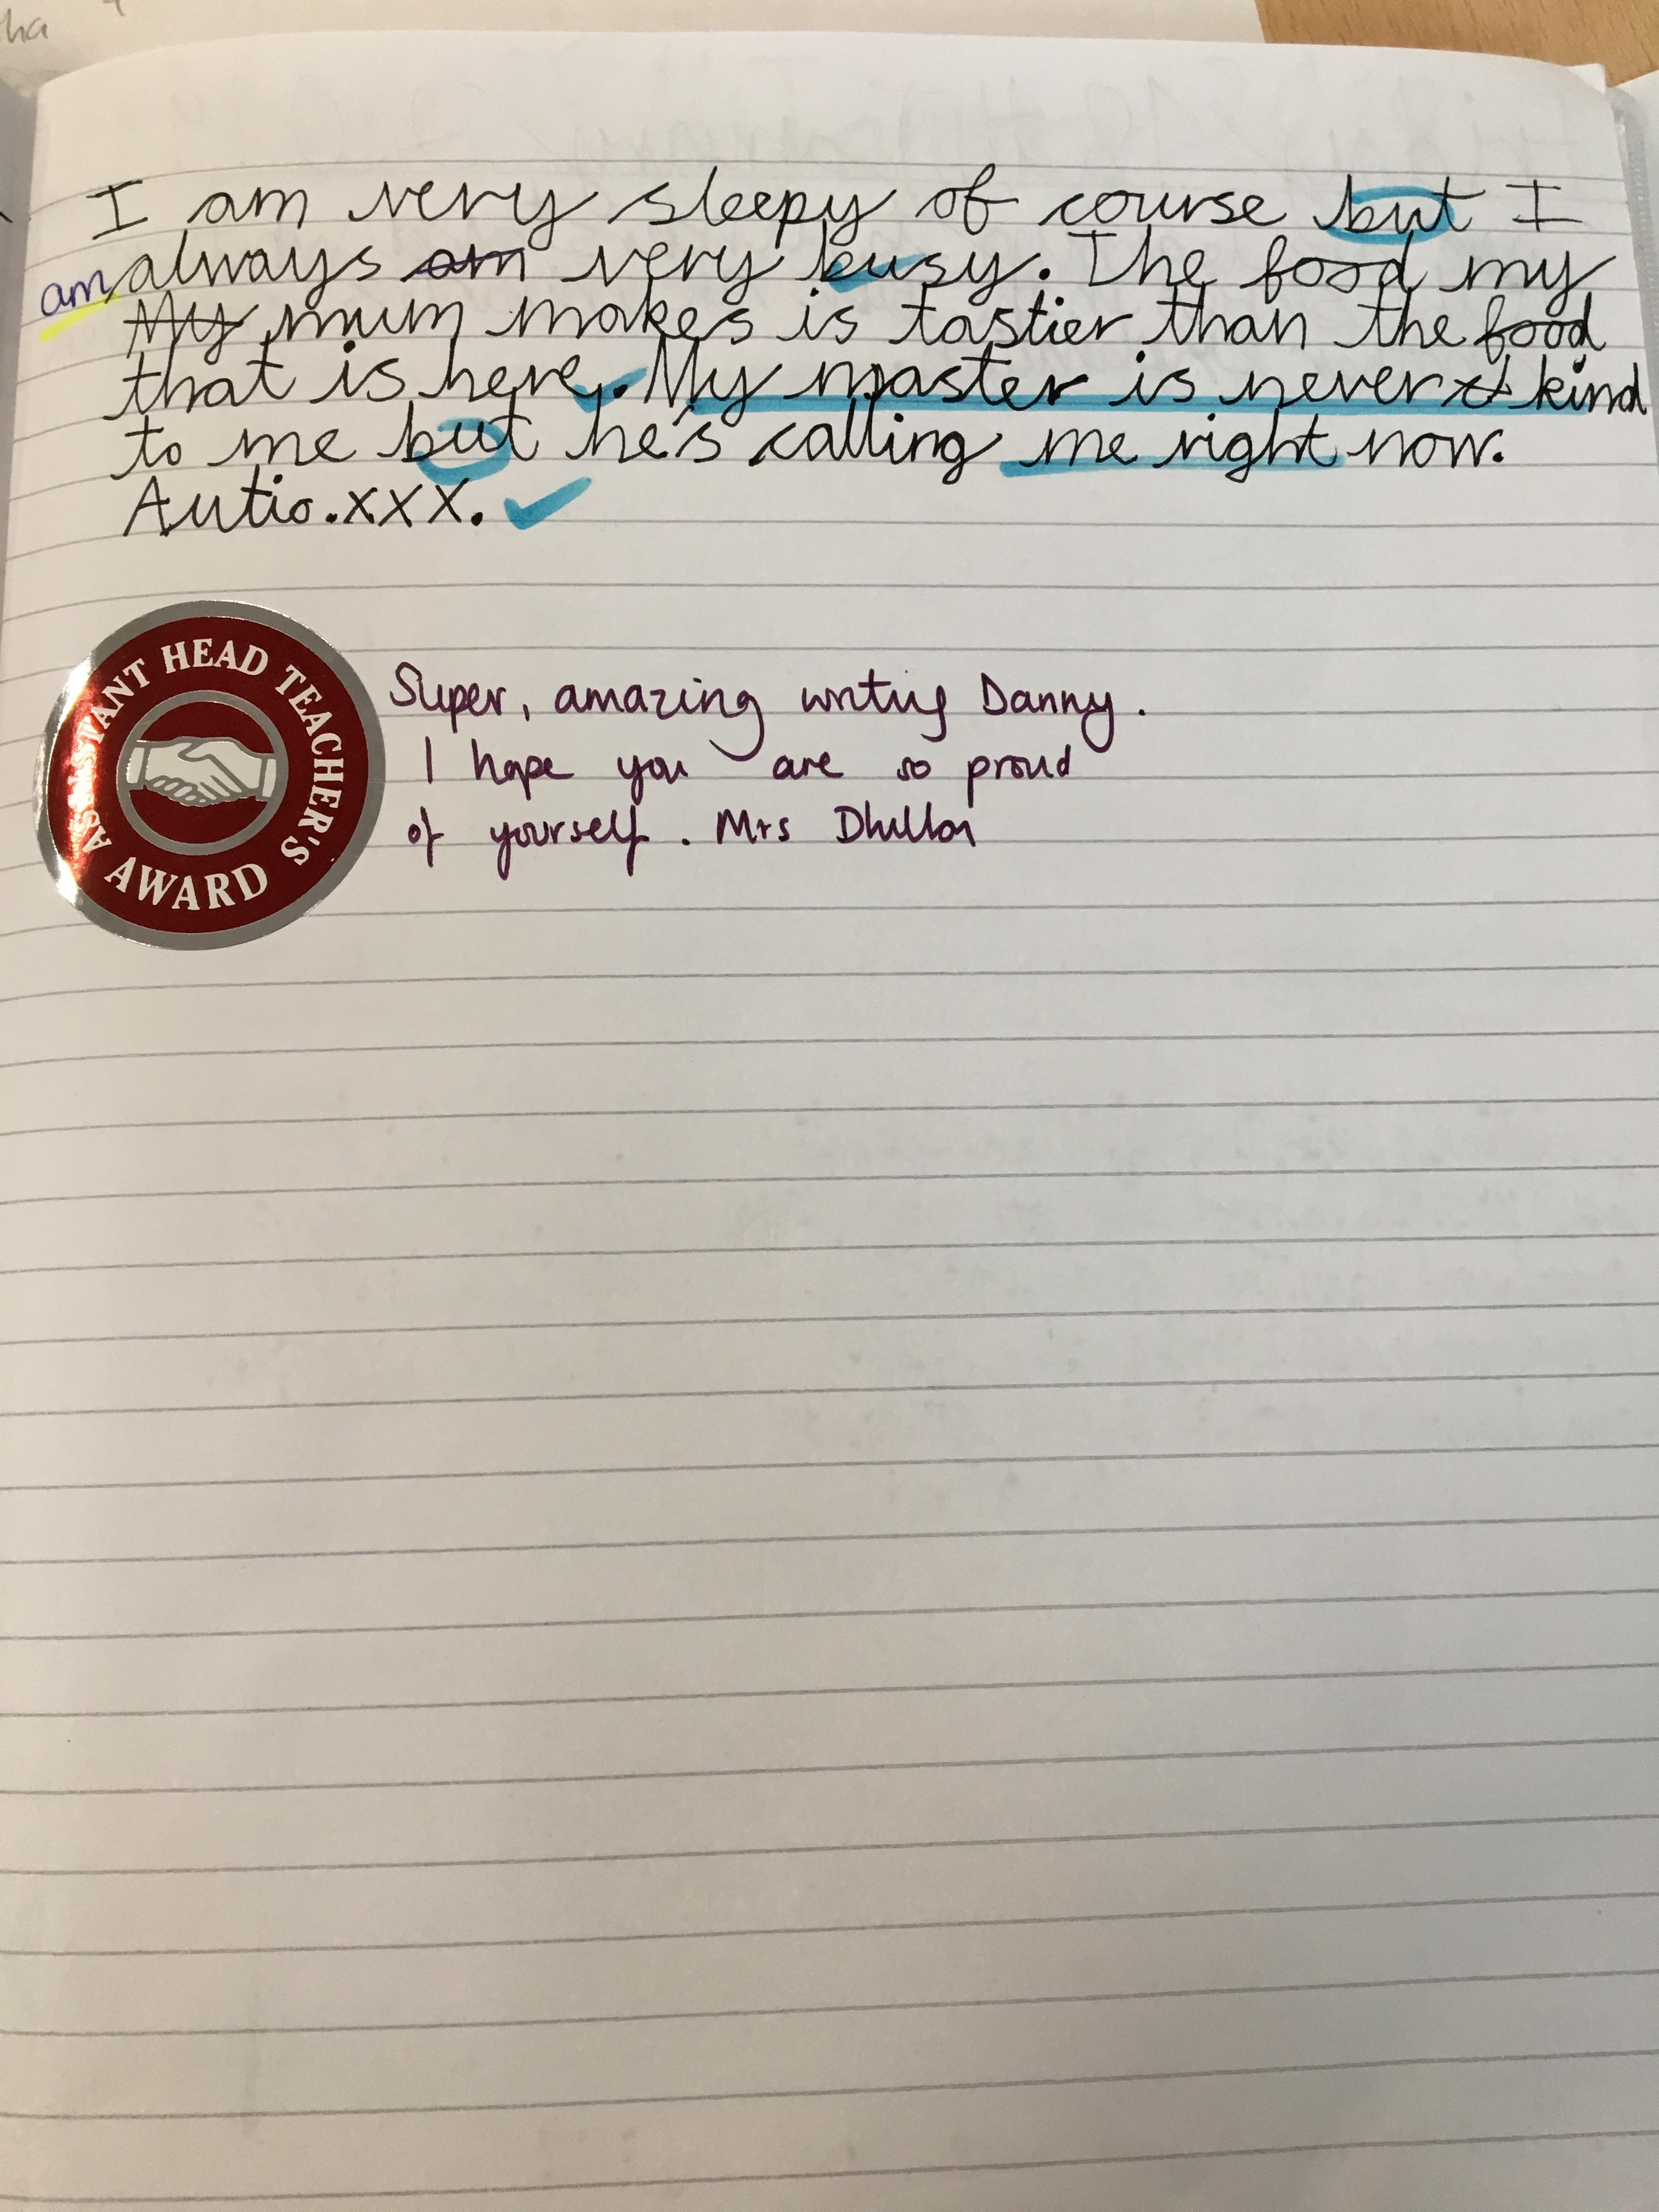 ha
I am very sleepy of course but I
am always am very busy. The food my
My mum makes is tastier than the food
that is here. My master is never kind
to me but he's calling me right now.
Autio.xxx.
ASSISTANT HEAD TEACHER'S
AWARD
Super, amazing writing Danny.
I hope you are so proud
of yourself. Mrs Dhillon